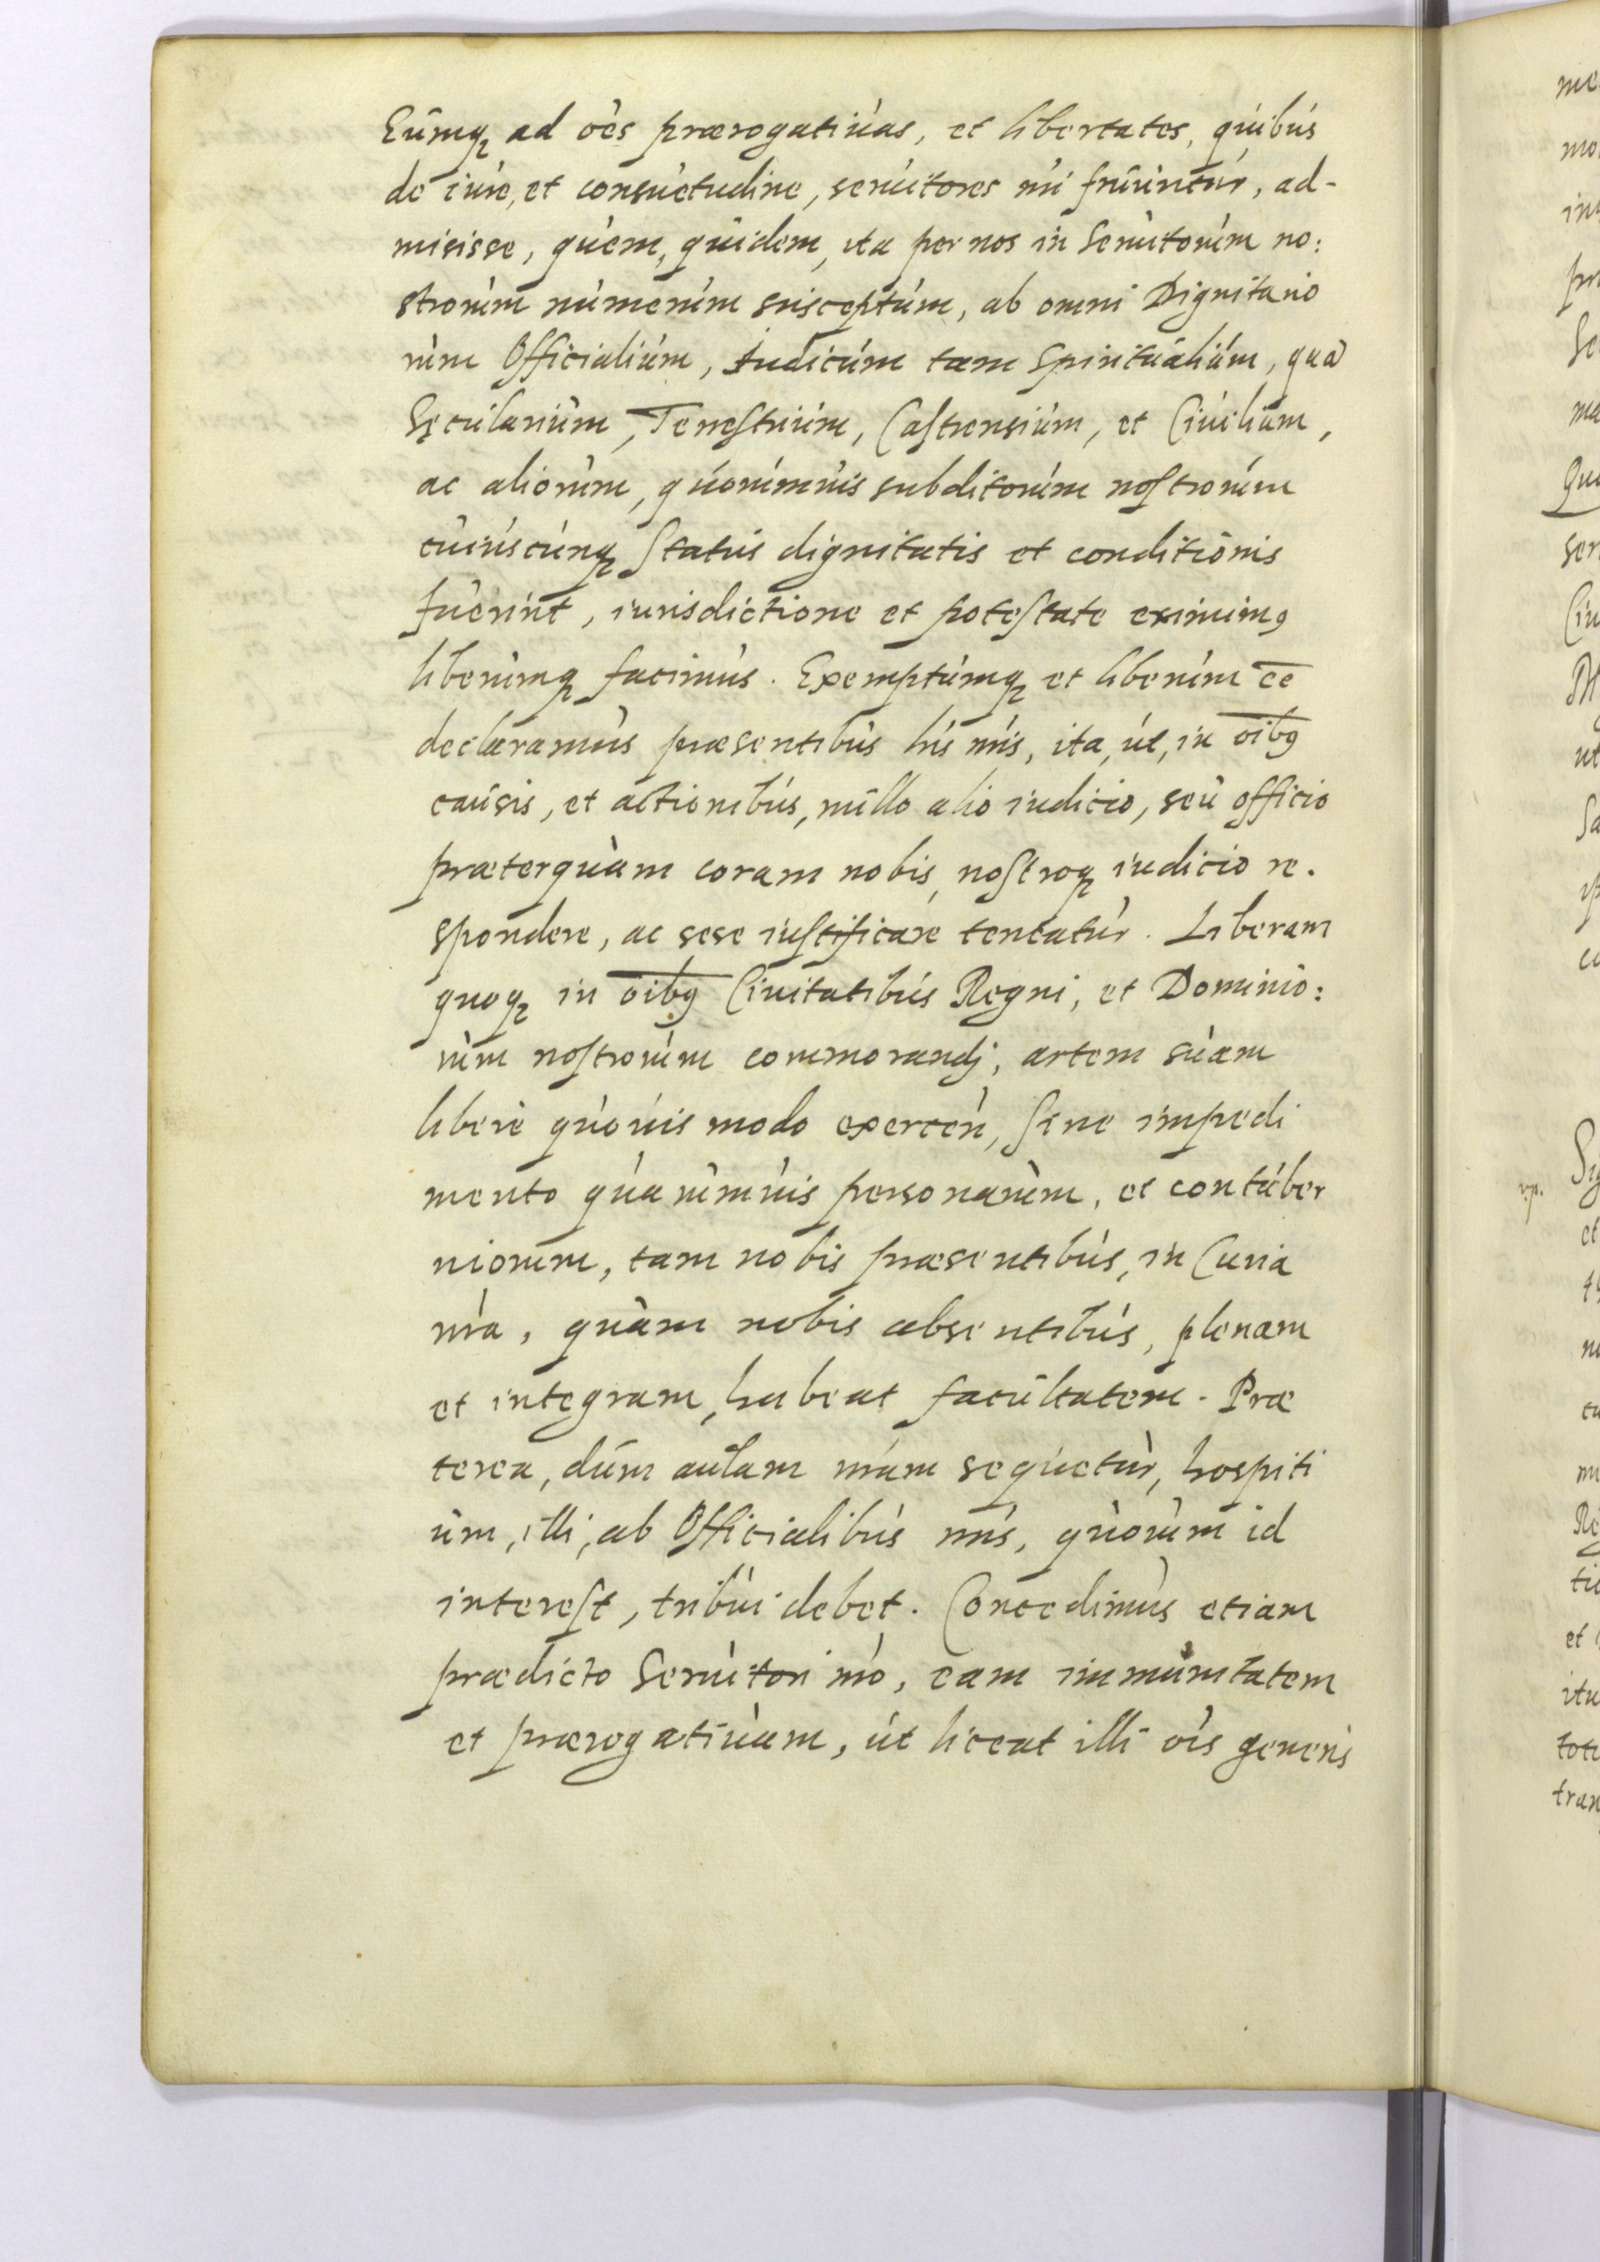 Eumq; ad oēs prærogatiuas, et libertates, quibus
de iure, et consuetudine, seruitores nri fruuntur, ad-
misisse, quem, quidem, ita per nos in Seruitorum no:
strorum numerum susceptum, ab omni Dignitario
rum Officialium, Iudicum tam Spiritualium, quā
Sęcularium, Terrestrium, Castrensium, et Ciuilium,
ac aliorum, quorumuis subditorum nostrorum
cuiuscunq; Status dignitatis et conditionis
fuerint, iurisdictione et potestate eximimꝰ
liberumq; facimus. Exemptumq; et liberum ēē
declaramus præsentibus his nris, ita, ut, in oībꝰ
causis, et actionibus, nullo alio iudicio, seu officio
præterquam coram nobis, nostroq; iudicio re.
spondere, ac sese iustificare teneatur. Liberam
quoq; in oībꝰ Ciuitatibus Regni, et Dominio:
rum nostrorum commorandj, artem suam
libere quouis modo exercen, Sine impedi
mento quarumuis personarum, et contuber
niorum, tam nobis præsentibus, in Curia
nra, quam nobis absentibus, plenam
et integram, habeat facultatem. Præ
terea, dum aulam nram sequetur, hospiti
um, illi, ab Officialibus nris, quorum id
interest, tribui debet. Concedimus etiam
prædicto Seruitori nro, eam immunitatem
et prærogatiuam, ut liceat illi oīs generis